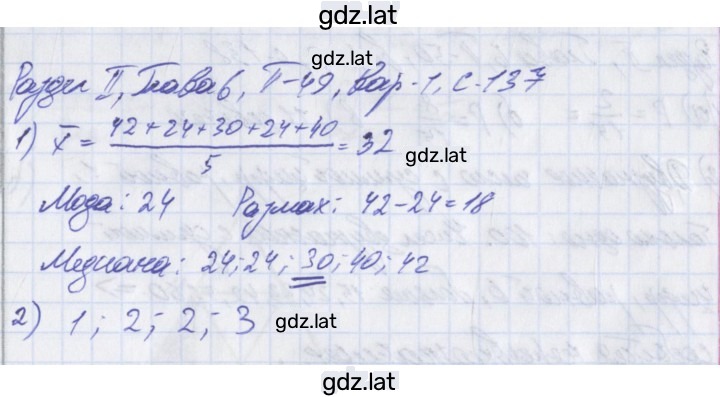 gdz.lat
Раздел II, Глава 6, П-49, Вар-1, С-137
1) x̄ = (42+24+30+24+40)/5 = 32
gdz.lat
Мода: 24 Размах: 42-24=18
Медиана: 24; 24; 30; 40; 42
2) 1; 2; 2; 3 gdz.lat
gdz.lat